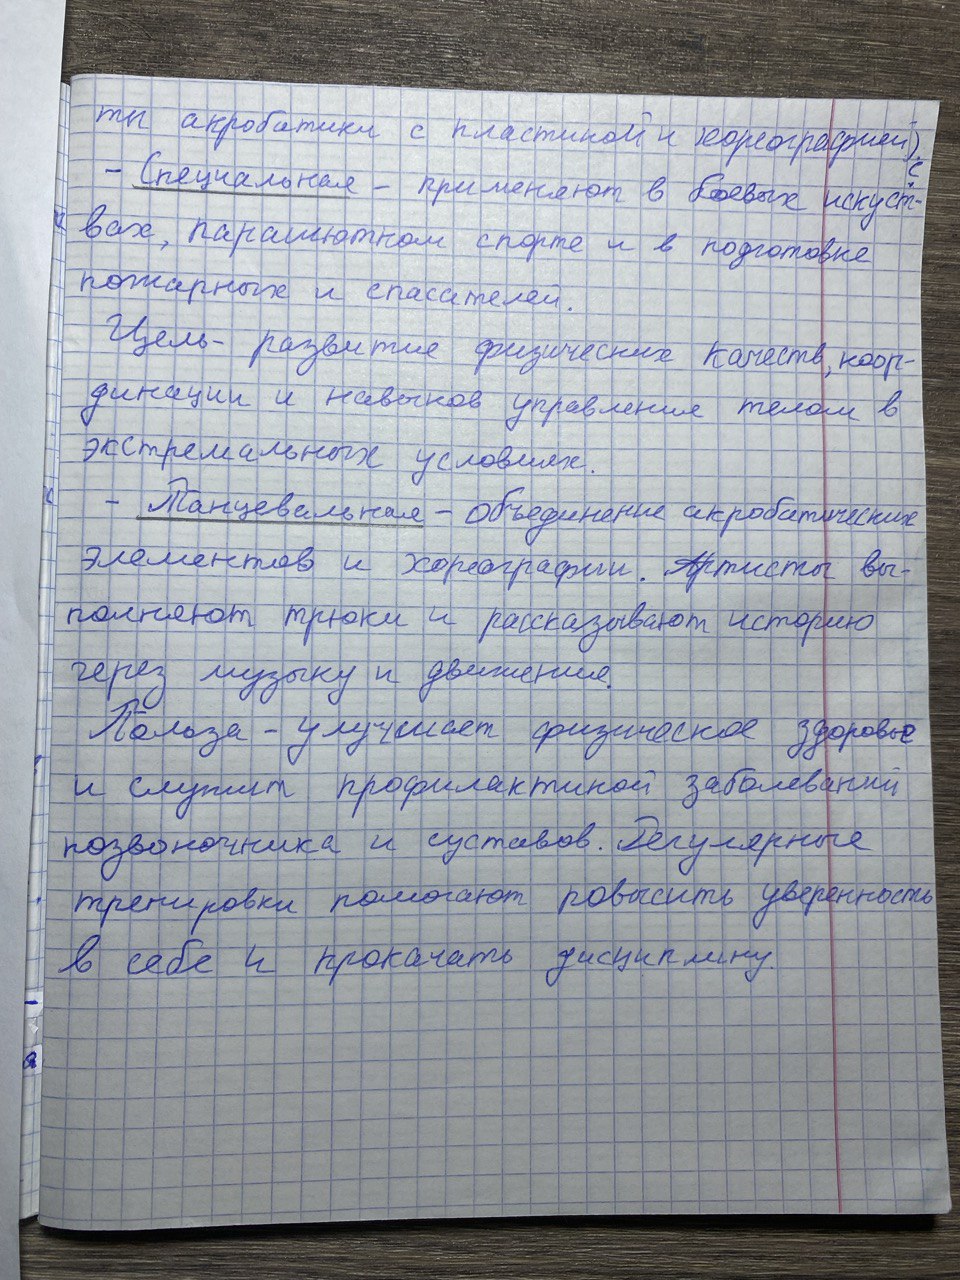 ты акробатики с пластикой и хореографией).
- Специальная - применяют в боевых искусст-
вах, парашютном спорте и в подготовке
пожарных и спасателей.
Цель - развитие физических качеств, коор-
динации и навыков управления телом в
экстремальных условиях.
- Танцевальная - объединение акробатических
элементов и хореографии. Артисты вы-
полняют трюки и рассказывают историю
через музыку и движения.
Польза - улучшает физическое здоровье
и служит профилактикой заболеваний
позвоночника и суставов. Регулярные
тренировки помогают повысить уверенность
в себе и прокачать дисциплину.